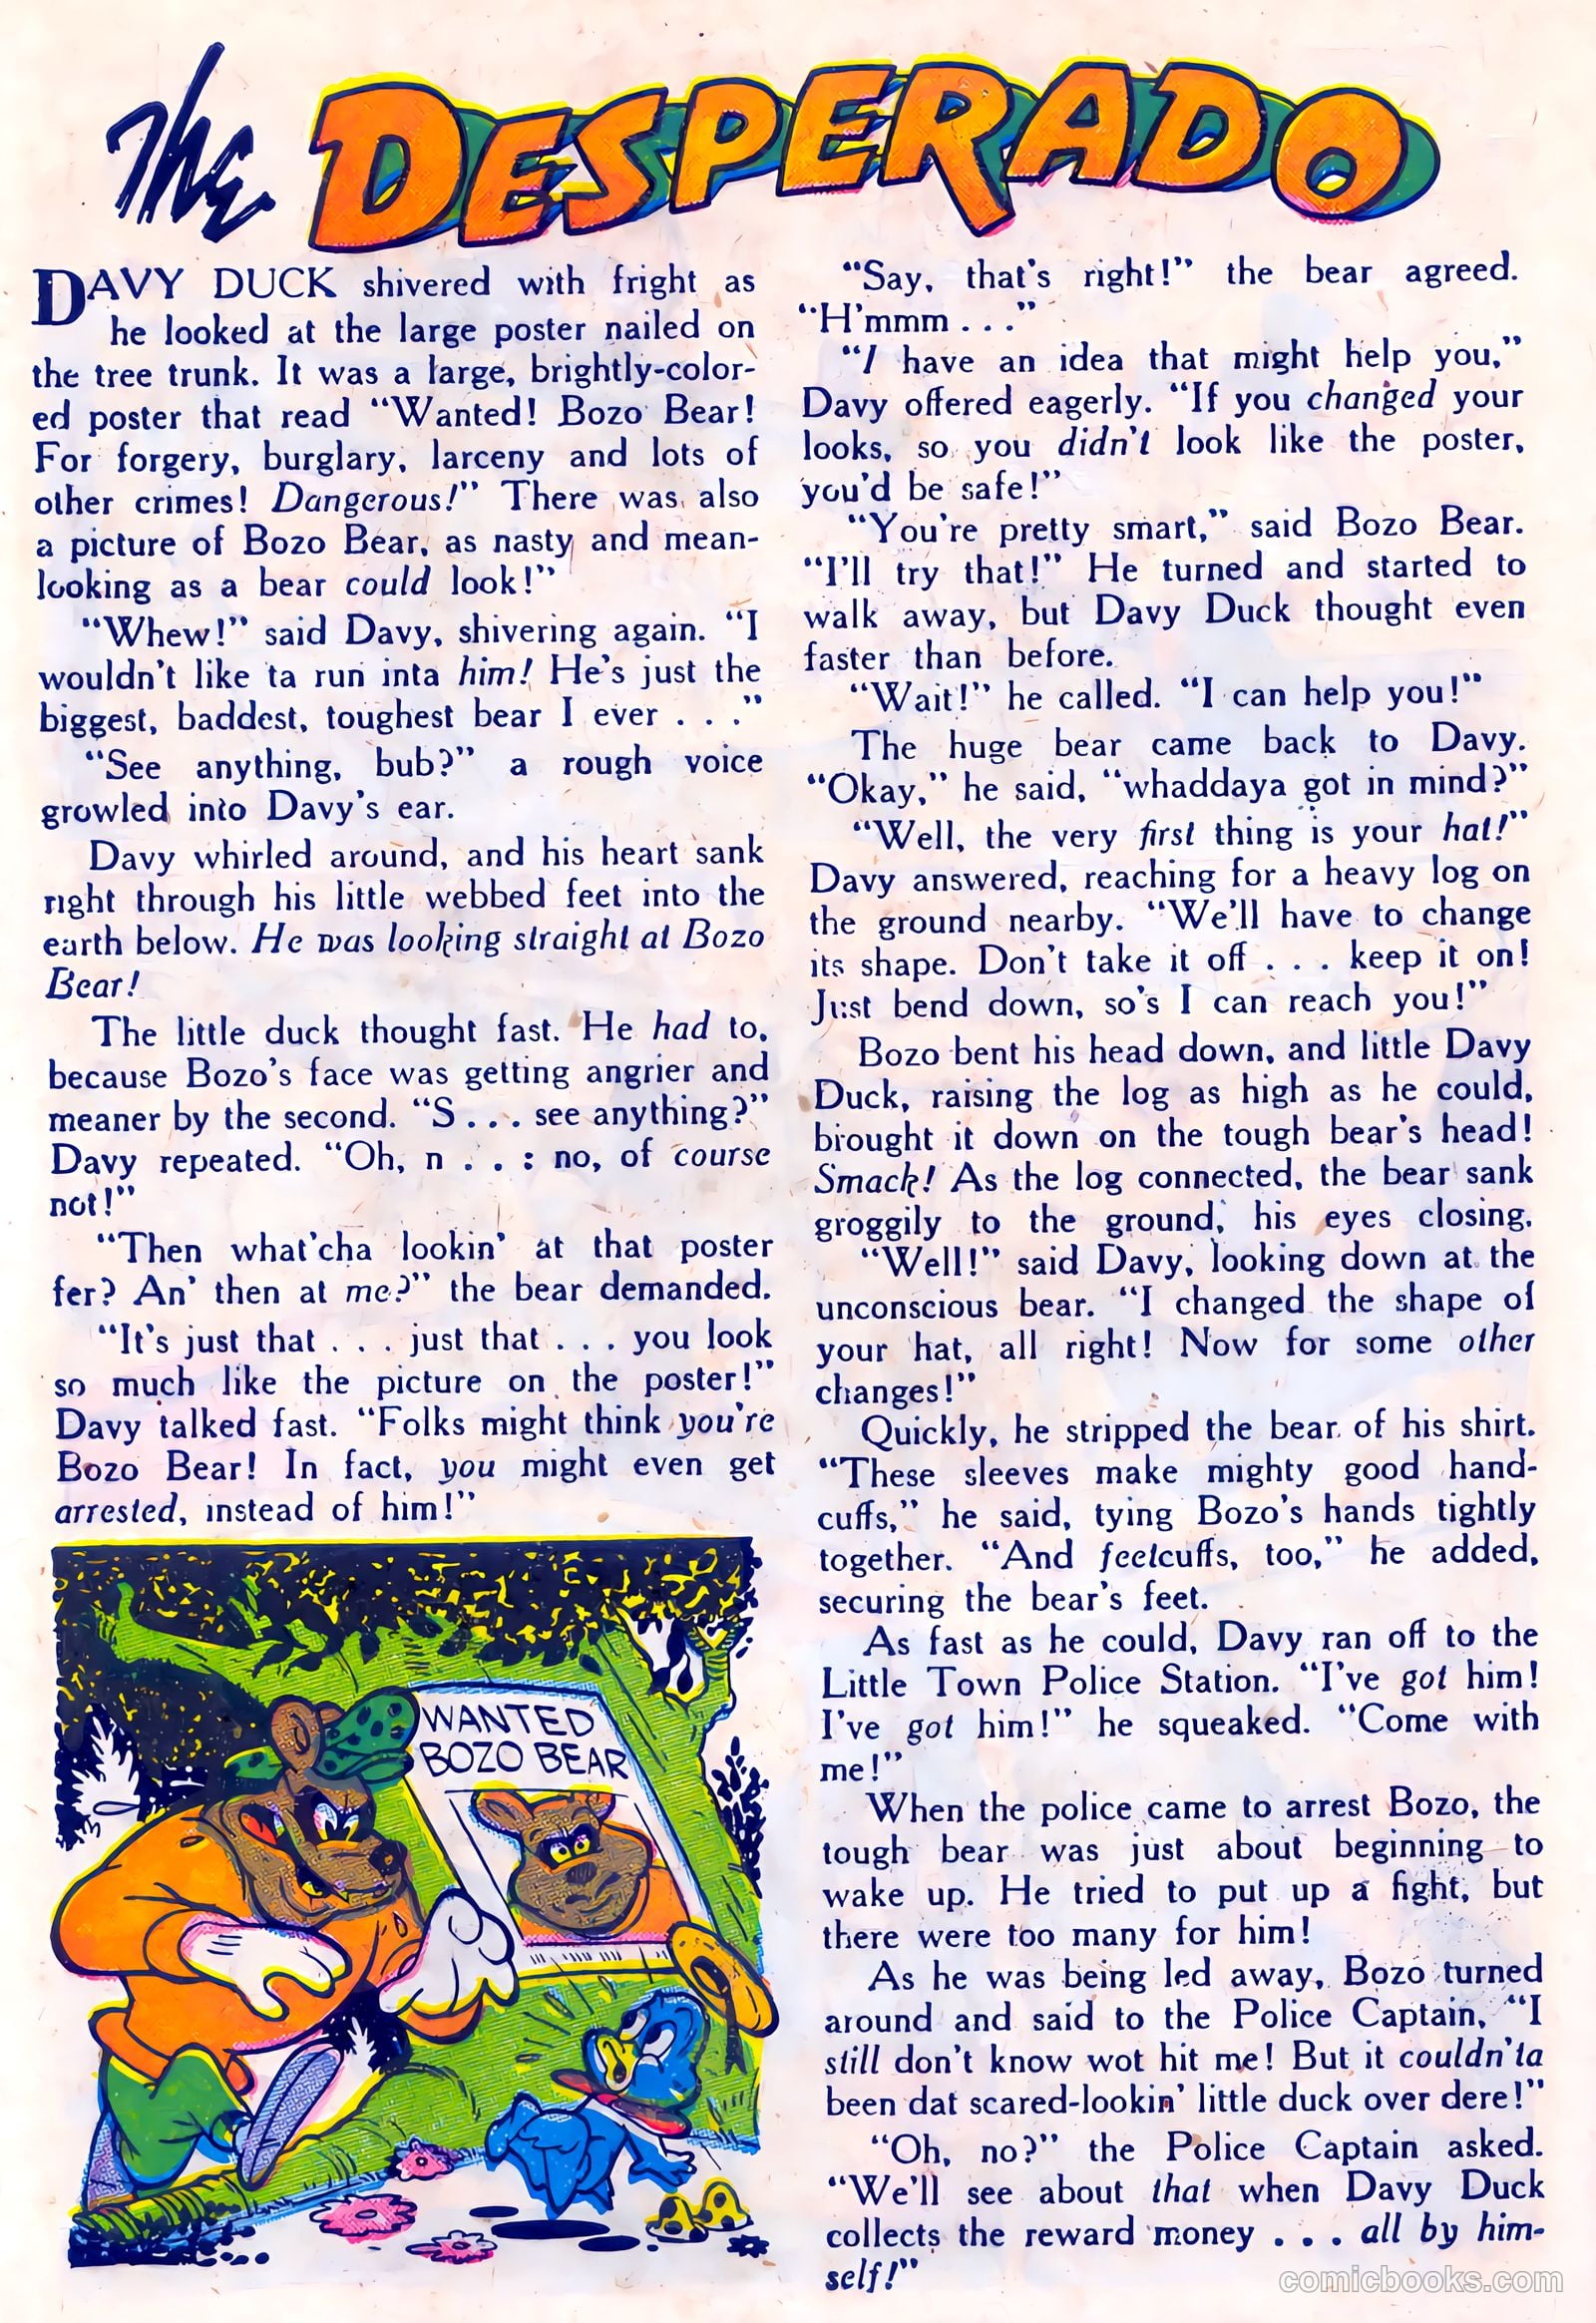 The DESPERADO
DAVY DUCK shivered with fright as
he looked at the large poster nailed on
the tree trunk. It was a large, brightly-color-
ed poster that read “Wanted! Bozo Bear!
For forgery, burglary, larceny and lots of
other crimes! Dangerous!” There was also
a picture of Bozo Bear, as nasty and mean-
looking as a bear could look!”
“Whew!” said Davy, shivering again. “I
wouldn't like ta run inta him! He's just the
biggest, baddest, toughest bear I ever . . .”
“See anything, bub?” a rough voice
growled into Davy's ear.
Davy whirled around, and his heart sank
right through his little webbed feet into the
earth below. He was looking straight at Bozo
Bear!
The little duck thought fast. He had to,
because Bozo's face was getting angrier and
meaner by the second. “S . . . see anything?”
Davy repeated. “Oh, n . . : no, of course
not!”
“Then what'cha lookin' at that poster
fer? An' then at me?” the bear demanded.
“It's just that . . . just that . . . you look
so much like the picture on the poster!”
Davy talked fast. “Folks might think you're
Bozo Bear! In fact, you might even get
arrested, instead of him!”
WANTED
BOZO BEAR
“Say, that's right!” the bear agreed.
“H'mmm . . .”
“I have an idea that might help you,”
Davy offered eagerly. “If you changed your
looks, so you didn't look like the poster,
you'd be safe!”
“You're pretty smart,” said Bozo Bear.
“I'll try that!” He turned and started to
walk away, but Davy Duck thought even
faster than before.
“Wait!” he called. “I can help you!”
The huge bear came back to Davy.
“Okay,” he said, “whaddaya got in mind?”
“Well, the very first thing is your hat!”
Davy answered, reaching for a heavy log on
the ground nearby. “We'll have to change
its shape. Don't take it off . . . keep it on!
Just bend down, so's I can reach you!”
Bozo bent his head down, and little Davy
Duck, raising the log as high as he could,
brought it down on the tough bear's head!
Smack! As the log connected, the bear sank
groggily to the ground, his eyes closing.
“Well!” said Davy, looking down at the
unconscious bear. “I changed the shape of
your hat, all right! Now for some other
changes!”
Quickly, he stripped the bear of his shirt.
“These sleeves make mighty good hand-
cuffs,” he said, tying Bozo's hands tightly
together. “And feetcuffs, too,” he added,
securing the bear's feet.
As fast as he could, Davy ran off to the
Little Town Police Station. “I've got him!
I've got him!” he squeaked. “Come with
me!”
When the police came to arrest Bozo, the
tough bear was just about beginning to
wake up. He tried to put up a fight, but
there were too many for him!
As he was being led away, Bozo turned
around and said to the Police Captain, “I
still don't know wot hit me! But it couldn'ta
been dat scared-lookin' little duck over dere!”
“Oh, no?” the Police Captain asked.
“We'll see about that when Davy Duck
collects the reward money . . . all by him-
self!”
comicbooks.com